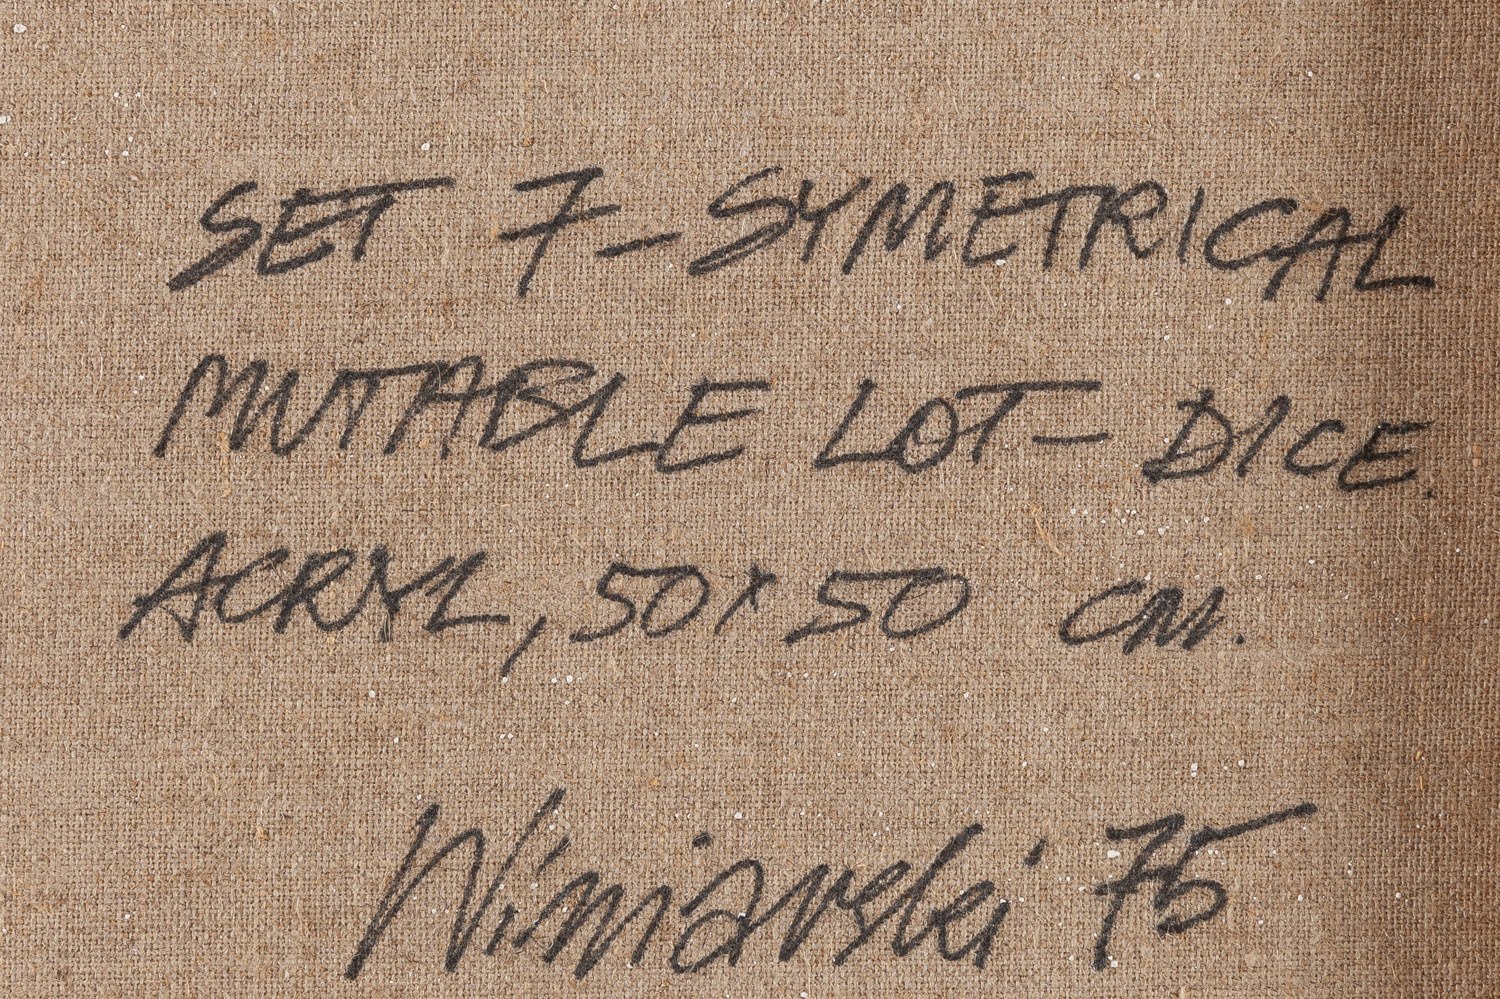 SET 7 - SYMETRICAL
MUTABLE LOT - DICE.
ACRYL, 50 x 50 CM.
Winiarski 75